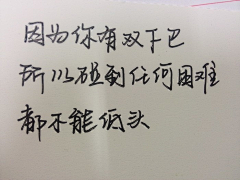 因为你有双下巴
所以碰到任何困难
都不能低头